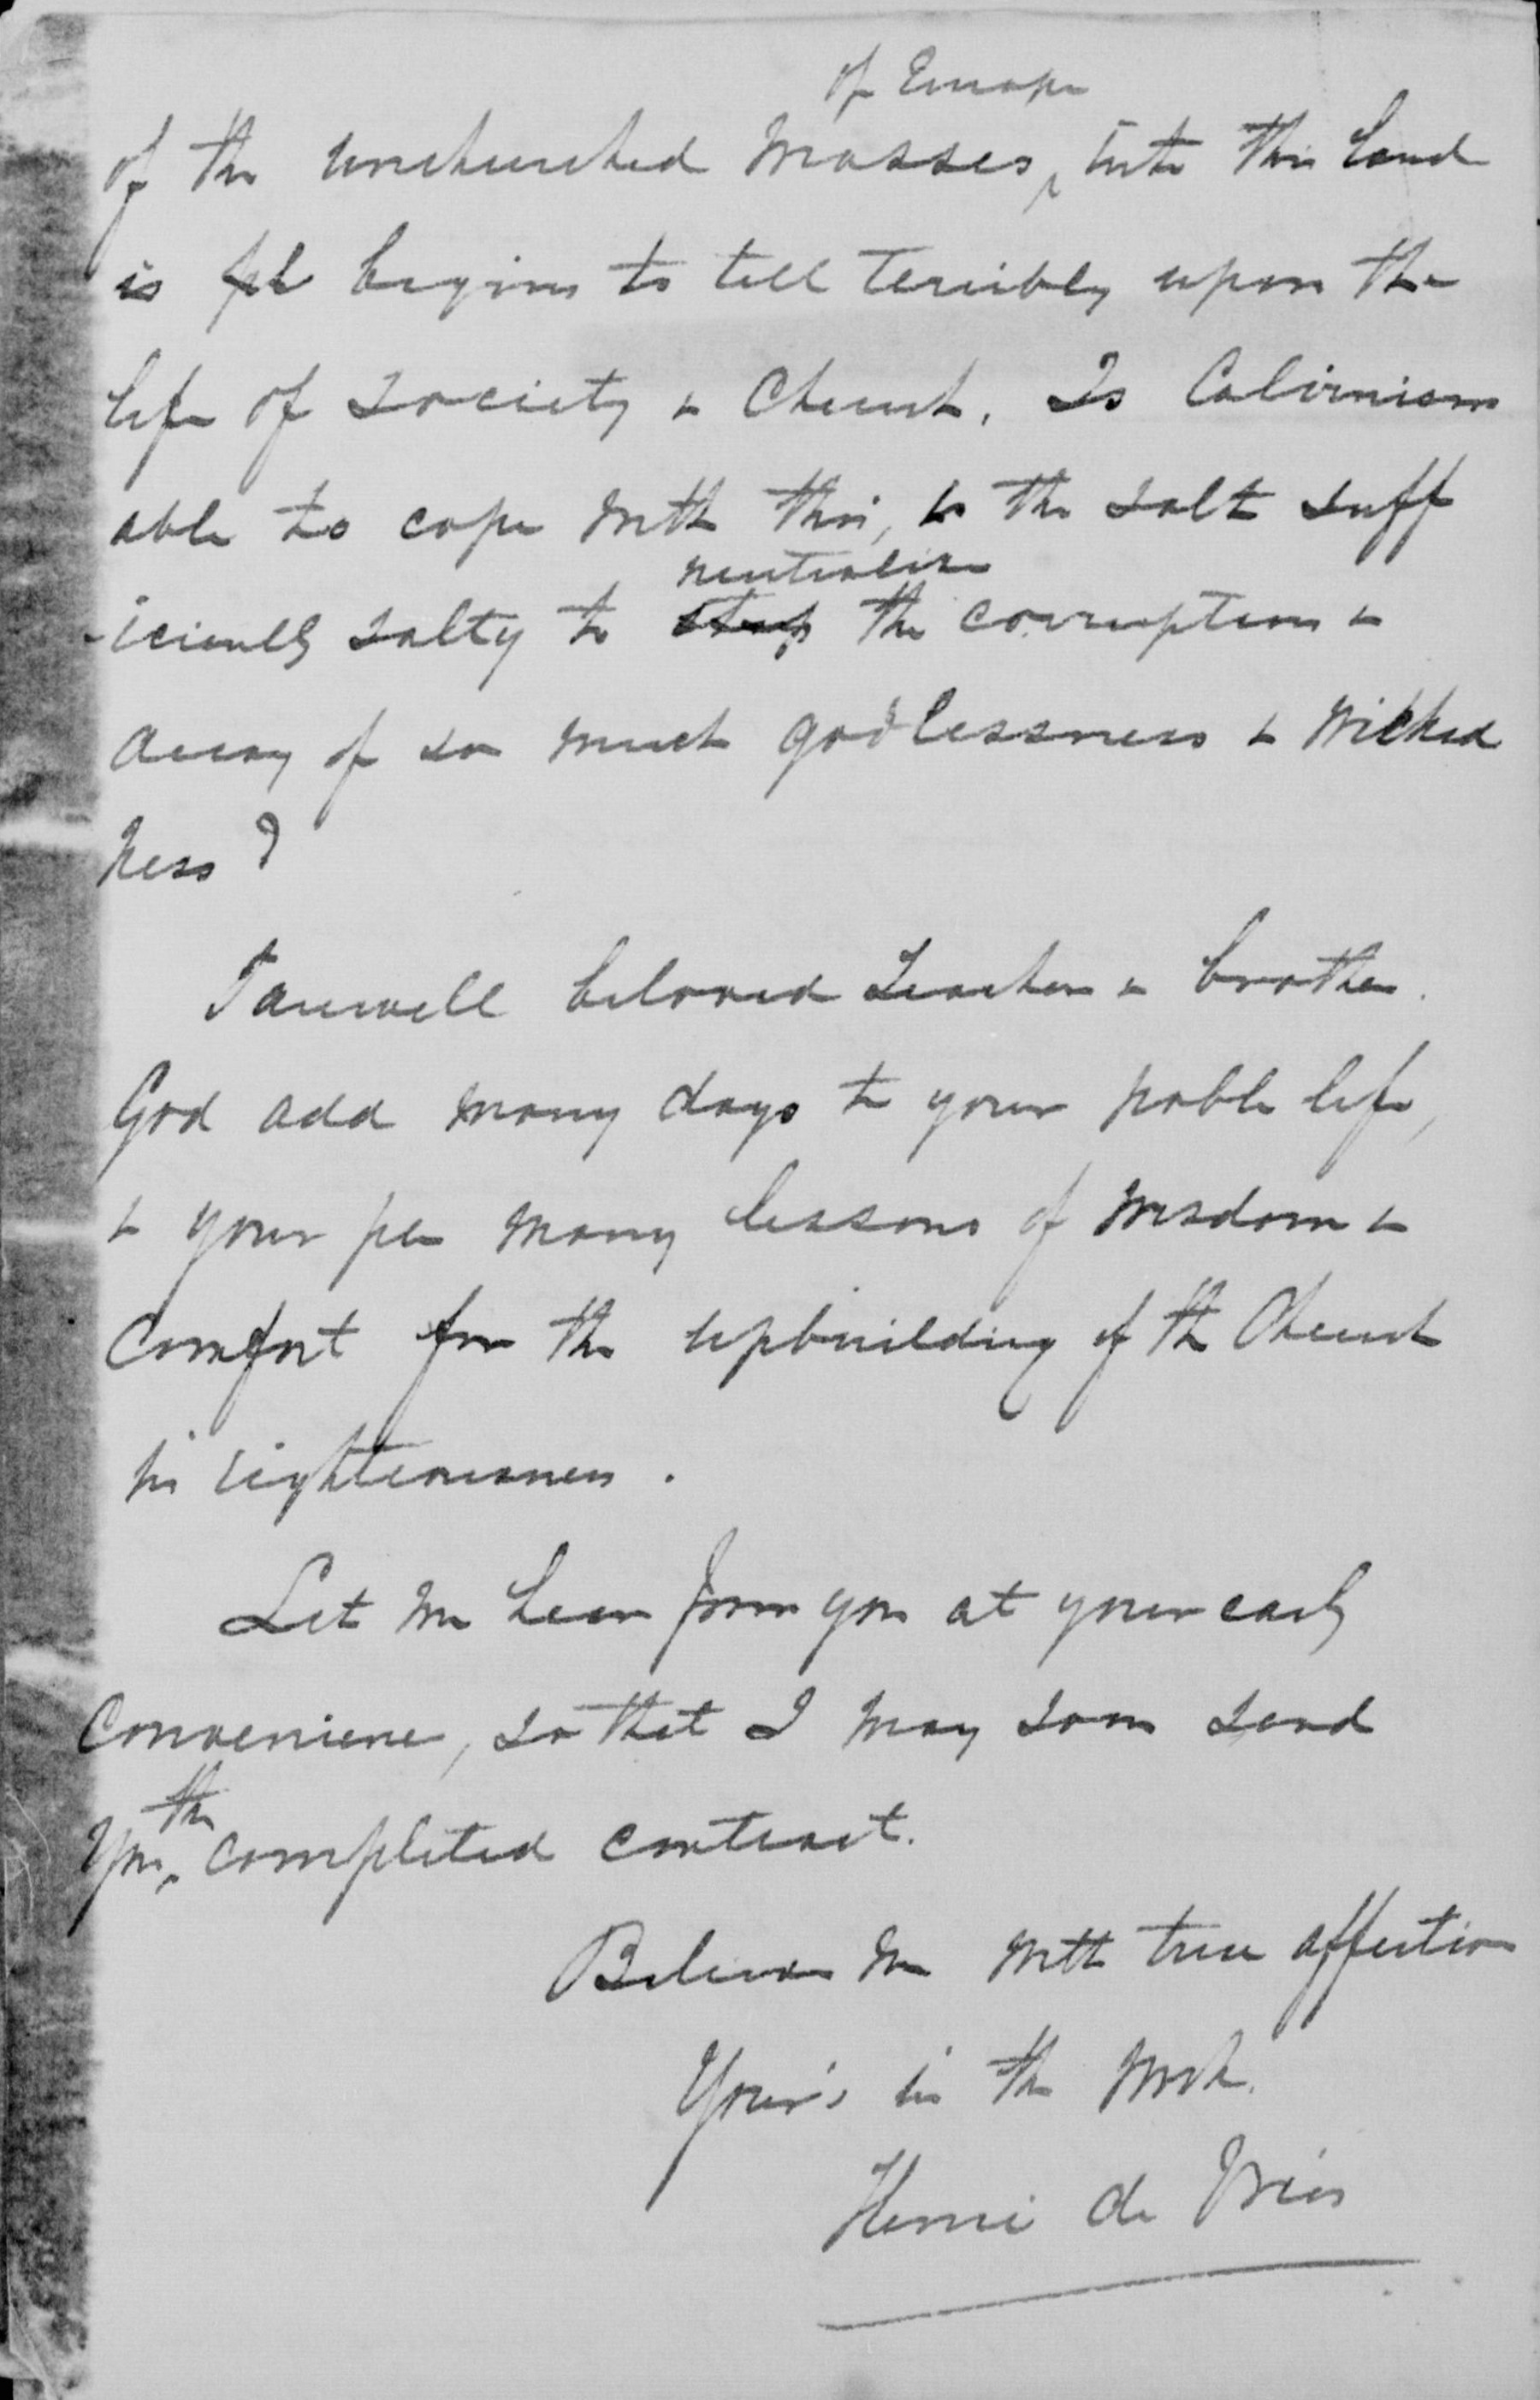 of Europe
of the unchurched masses, into this land
is begins to tell terribly upon the
life of society & Church. Is Calvinism
able to cope with this, is the salt suff
neutralize
-iciently salty to stop the corruption &
decay of so much godlessness & wicked
ness?
Farewell beloved Teacher & brother.
God add many days to your noble life,
& your pen many lessons of wisdom &
comfort for the upbuilding of the Church
in righteousness.
Let me hear from you at your early
convenience, so that I may soon send
the
you completed contract.
Believe me with true affection
Your's in the work.
Henri de Vries